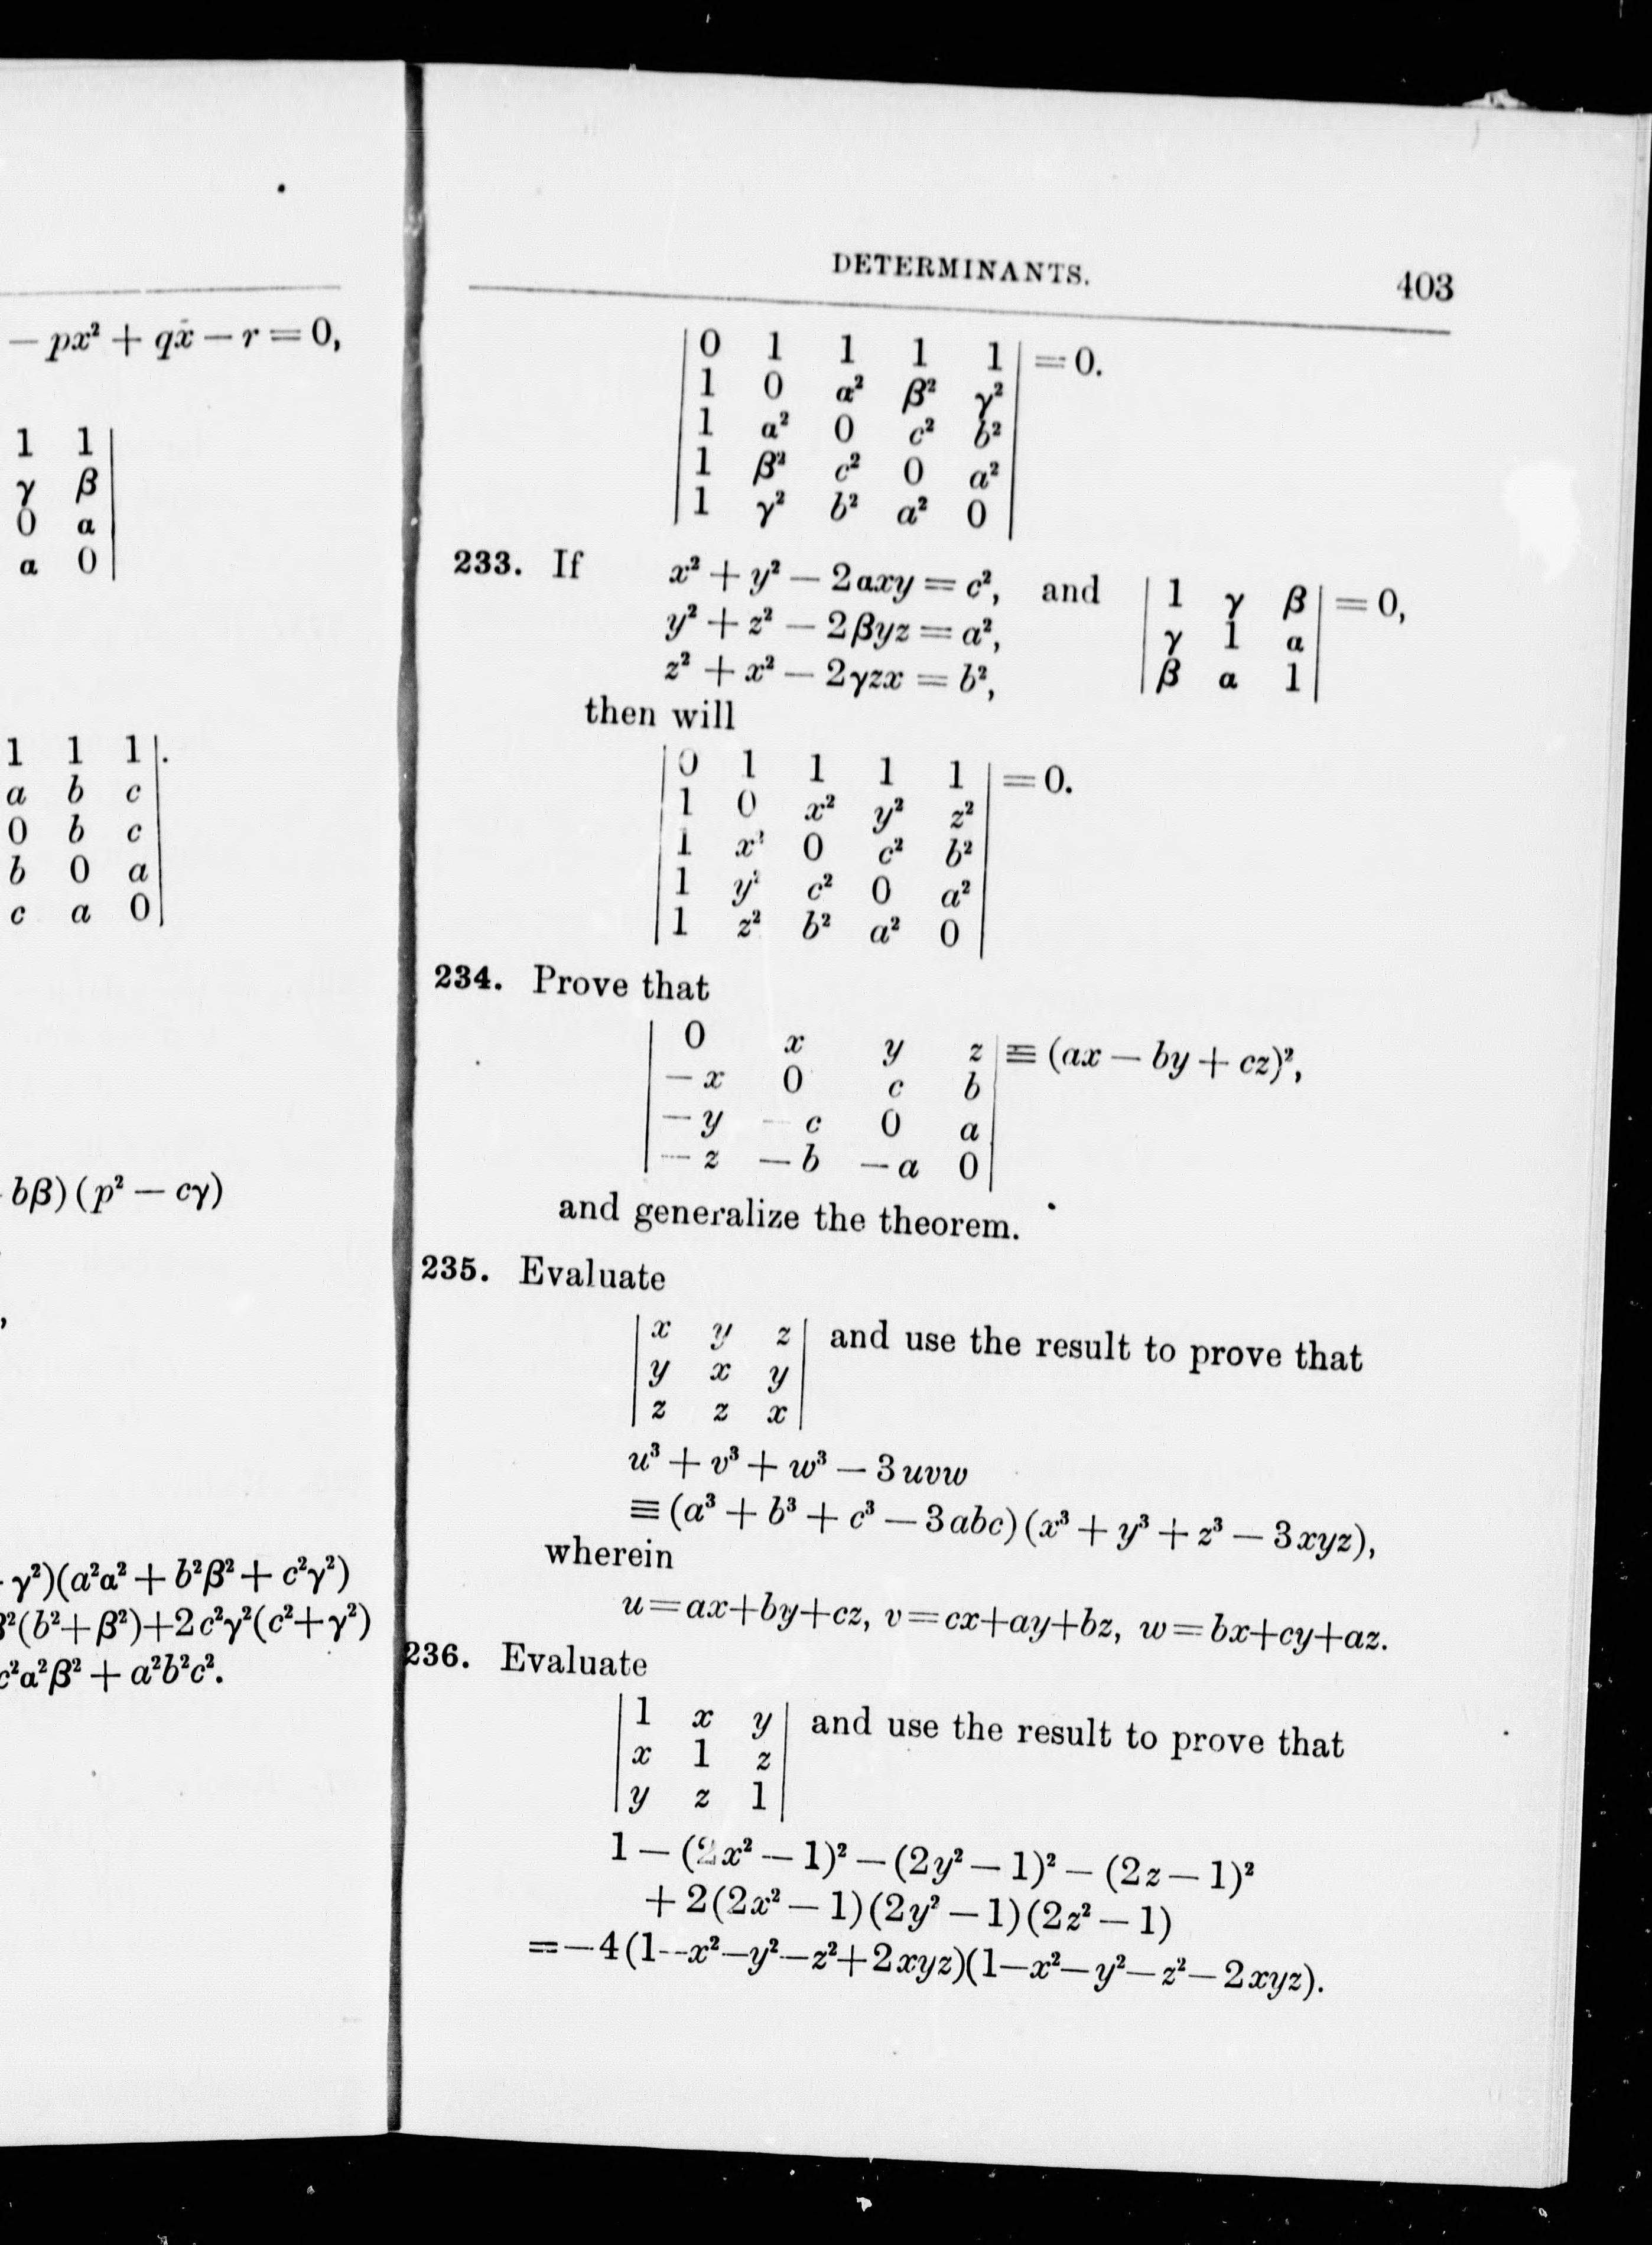 − px² + qx − r = 0,
1 1
γ β
0 α
α 0
1 1 1.
a b c
0 b c
b 0 a
c a 0
bβ)(p² − cγ)
,
γ²)(a²α² + b²β² + c²γ²)
β²(b²+β²)+2c²γ²(c²+γ²)
c²α²β² + a²b²c².
DETERMINANTS. 403
0 1 1 1 1 = 0.
1 0 α² β² γ²
1 α² 0 c² b²
1 β² c² 0 a²
1 γ² b² a² 0
233. If x² + y² − 2αxy = c², and 1 γ β = 0,
y² + z² − 2βyz = a², γ 1 α
z² + x² − 2γzx = b², β α 1
then will
0 1 1 1 1 = 0.
1 0 x² y² z²
1 x² 0 c² b²
1 y² c² 0 a²
1 z² b² a² 0
234. Prove that
0 x y z ≡ (ax − by + cz)²,
−x 0 c b
−y −c 0 a
−z −b −a 0
and generalize the theorem.
235. Evaluate
x y z and use the result to prove that
y x y
z z x
u³ + v³ + w³ − 3uvw
≡ (a³ + b³ + c³ − 3abc)(x³ + y³ + z³ − 3xyz),
wherein
u=ax+by+cz, v=cx+ay+bz, w=bx+cy+az.
236. Evaluate
1 x y and use the result to prove that
x 1 z
y z 1
1 − (2x² − 1)² − (2y² − 1)² − (2z − 1)²
+ 2(2x² − 1)(2y² − 1)(2z² − 1)
=−4(1−x²−y²−z²+2xyz)(1−x²−y²−z²−2xyz).